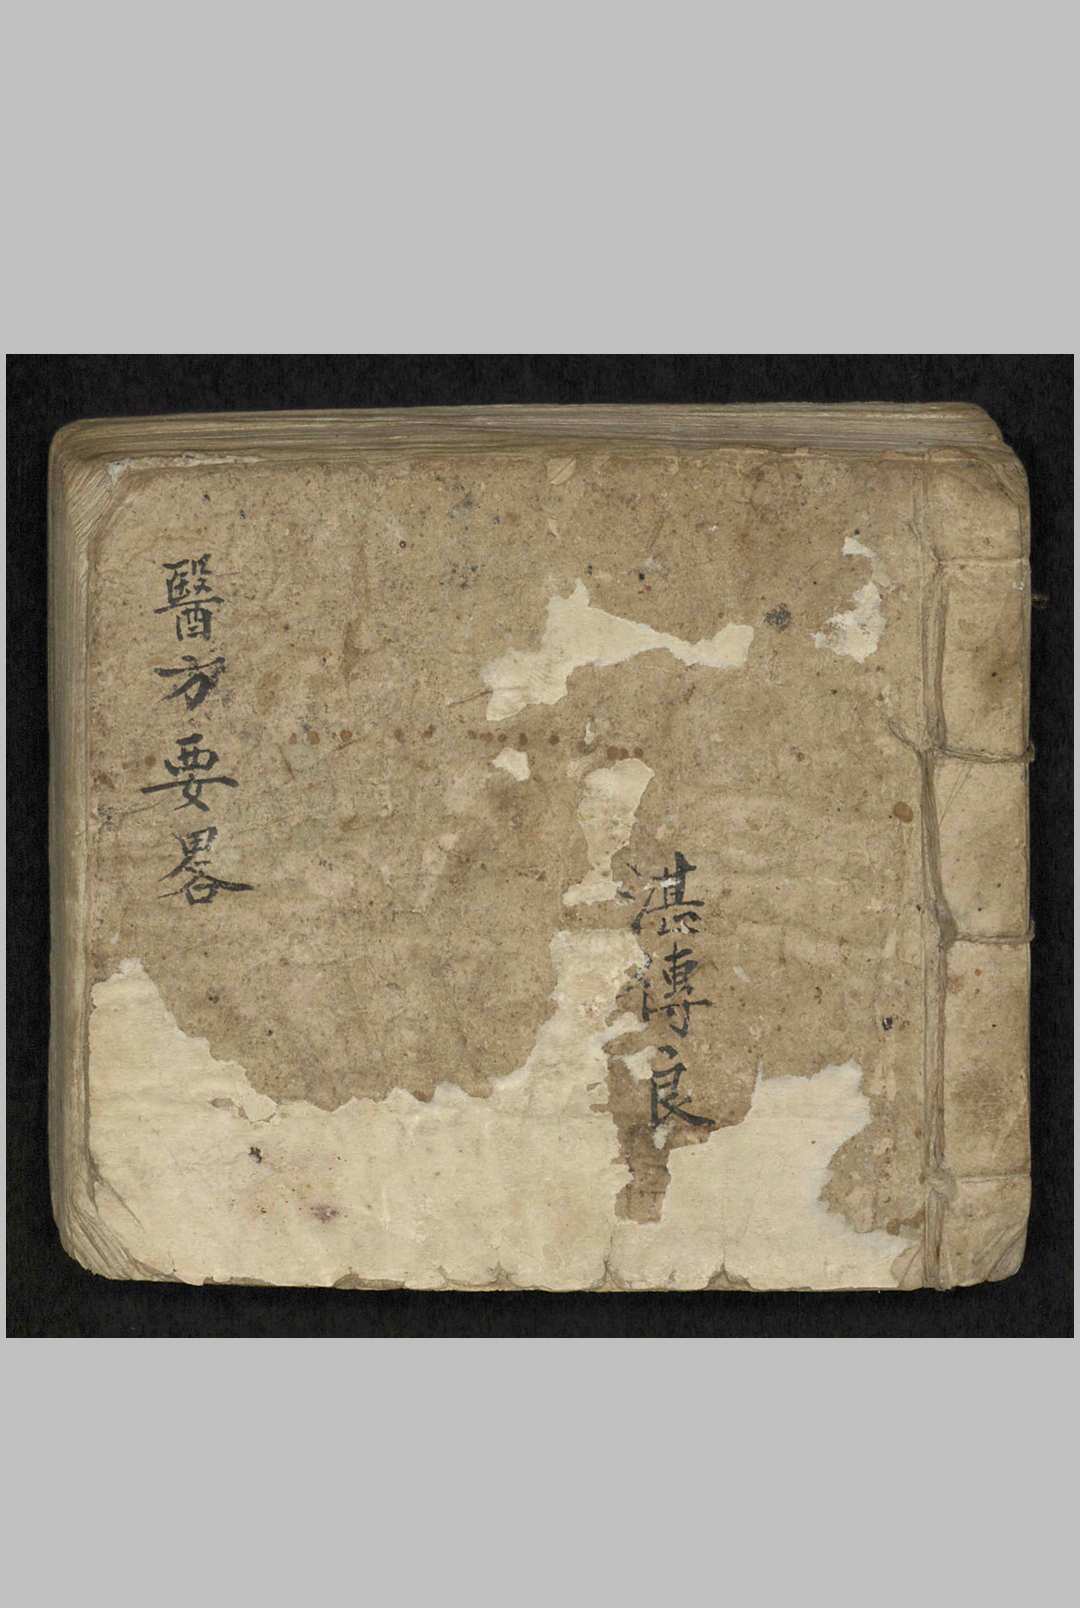 湛傳良
醫方要畧